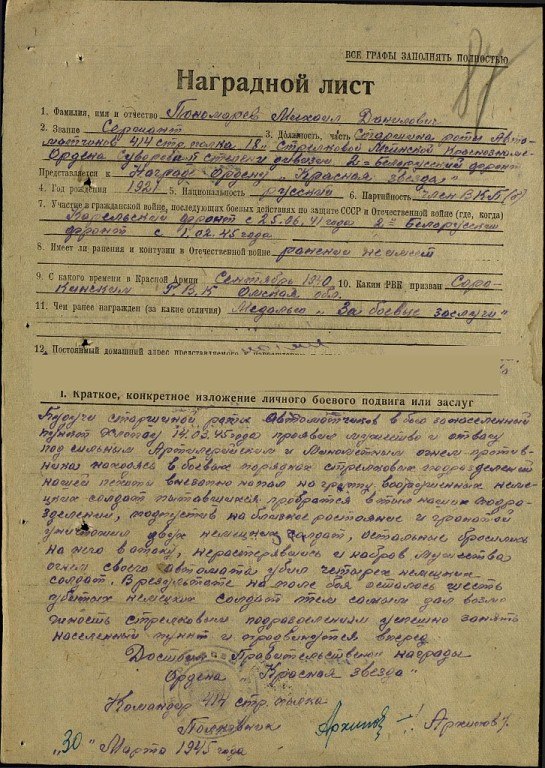 ВСЕ ГРАФЫ ЗАПОЛНЯТЬ ПОЛНОСТЬЮ
Наградной лист
1. Фамилия, имя и отчество Пономарев Михаил Данилович
2. Звание Сержант 3. Должность, часть Старшина роты Авто-
матчиков 414 стр. полка 18й Стрелковой Мгинской Краснознаме
Ордена Суворова II степени дивизии 2й Белорусский фронт
Представляется к Награде Ордену „Красная звезда"
4. Год рождения 1921 5. Национальность русский 6. Партийность член ВКП(б)
7. Участие в гражданской войне, последующих боевых действиях по защите СССР и Отечественной войне (где, когда)
Карельский фронт с 25.06.41 года 2й Белорусский
фронт с 1.02.45 года
8. Имеет ли ранения и контузии в Отечественной войне ранений не имеет
9. С какого времени в Красной Армии Сентябрь 1940 10. Каким РВК призван Соро-
кинским РВК Омская обл.
11. Чем ранее награжден (за какие отличия) Медалью „За боевые заслуги"
12. Постоянный домашний адрес представляемого
I. Краткое, конкретное изложение личного боевого подвига или заслуг
Будучи старшиной роты Автоматчиков в бою за населенный
пункт 14.03.45 года проявил мужество и отвагу
под сильным Артилерийским и Минометным огнем против-
ника находясь в боевых порядках стрелковых подразделений
нашей пехоты внезапно напал на группу вооруженных неме-
цких солдат пытавшихся пробратся в тыл наших подра-
зделений, подпустив на близкое ростояние и гранатой
уничтожил двух немецких солдат, остальные бросились
на него в атаку, нерастерявшись и набров мужества
огнем своего автомата убил четырех немецких
солдат. В результате на поле боя осталось шесть
убитых немецких солдат тем самым дал возмо-
жность стрелковым подразделениям успешно занять
населенный пункт и продвинутся вперед
Достоин Правительственой награды
Ордена „Красная звезда"
Командир 414 стр. полка
Полковник Архипов
„30" Марта 1945 года